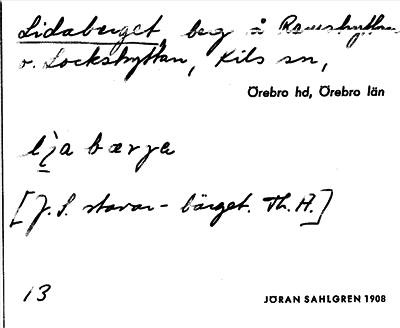 Lidaberget, berg å Ramshyttan
o. Lockshyttan, Kils sn,
Örebro hd, Örebro län
lịa bærja
[J. S. stavar - bärget. Th. A.]
13
JÖRAN SAHLGREN 1908